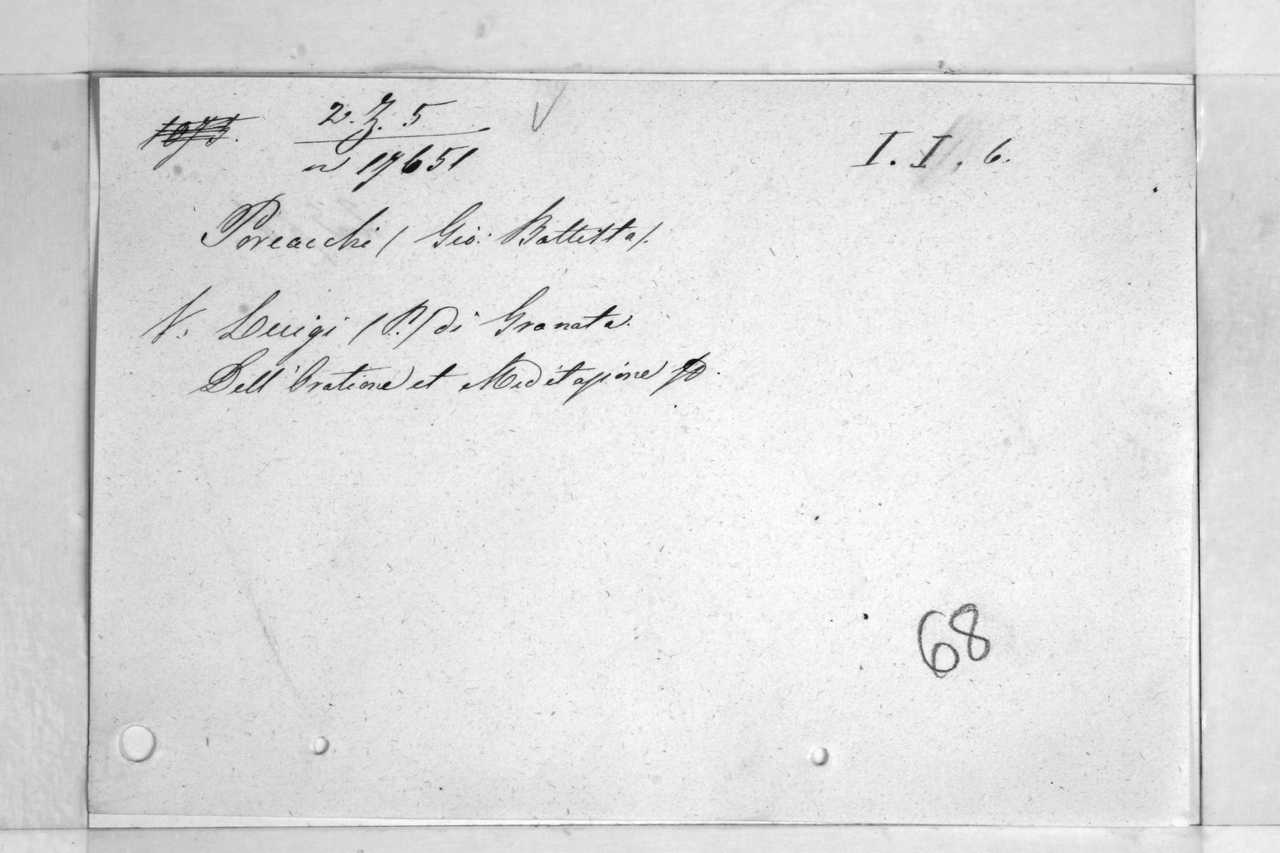 2. Z. 5
n 17651
I. I. 6.
Porcacchi (Gio: Battista).
V. Luigi (P.) di Granata.
Dell'Oratione et Meditazione
68